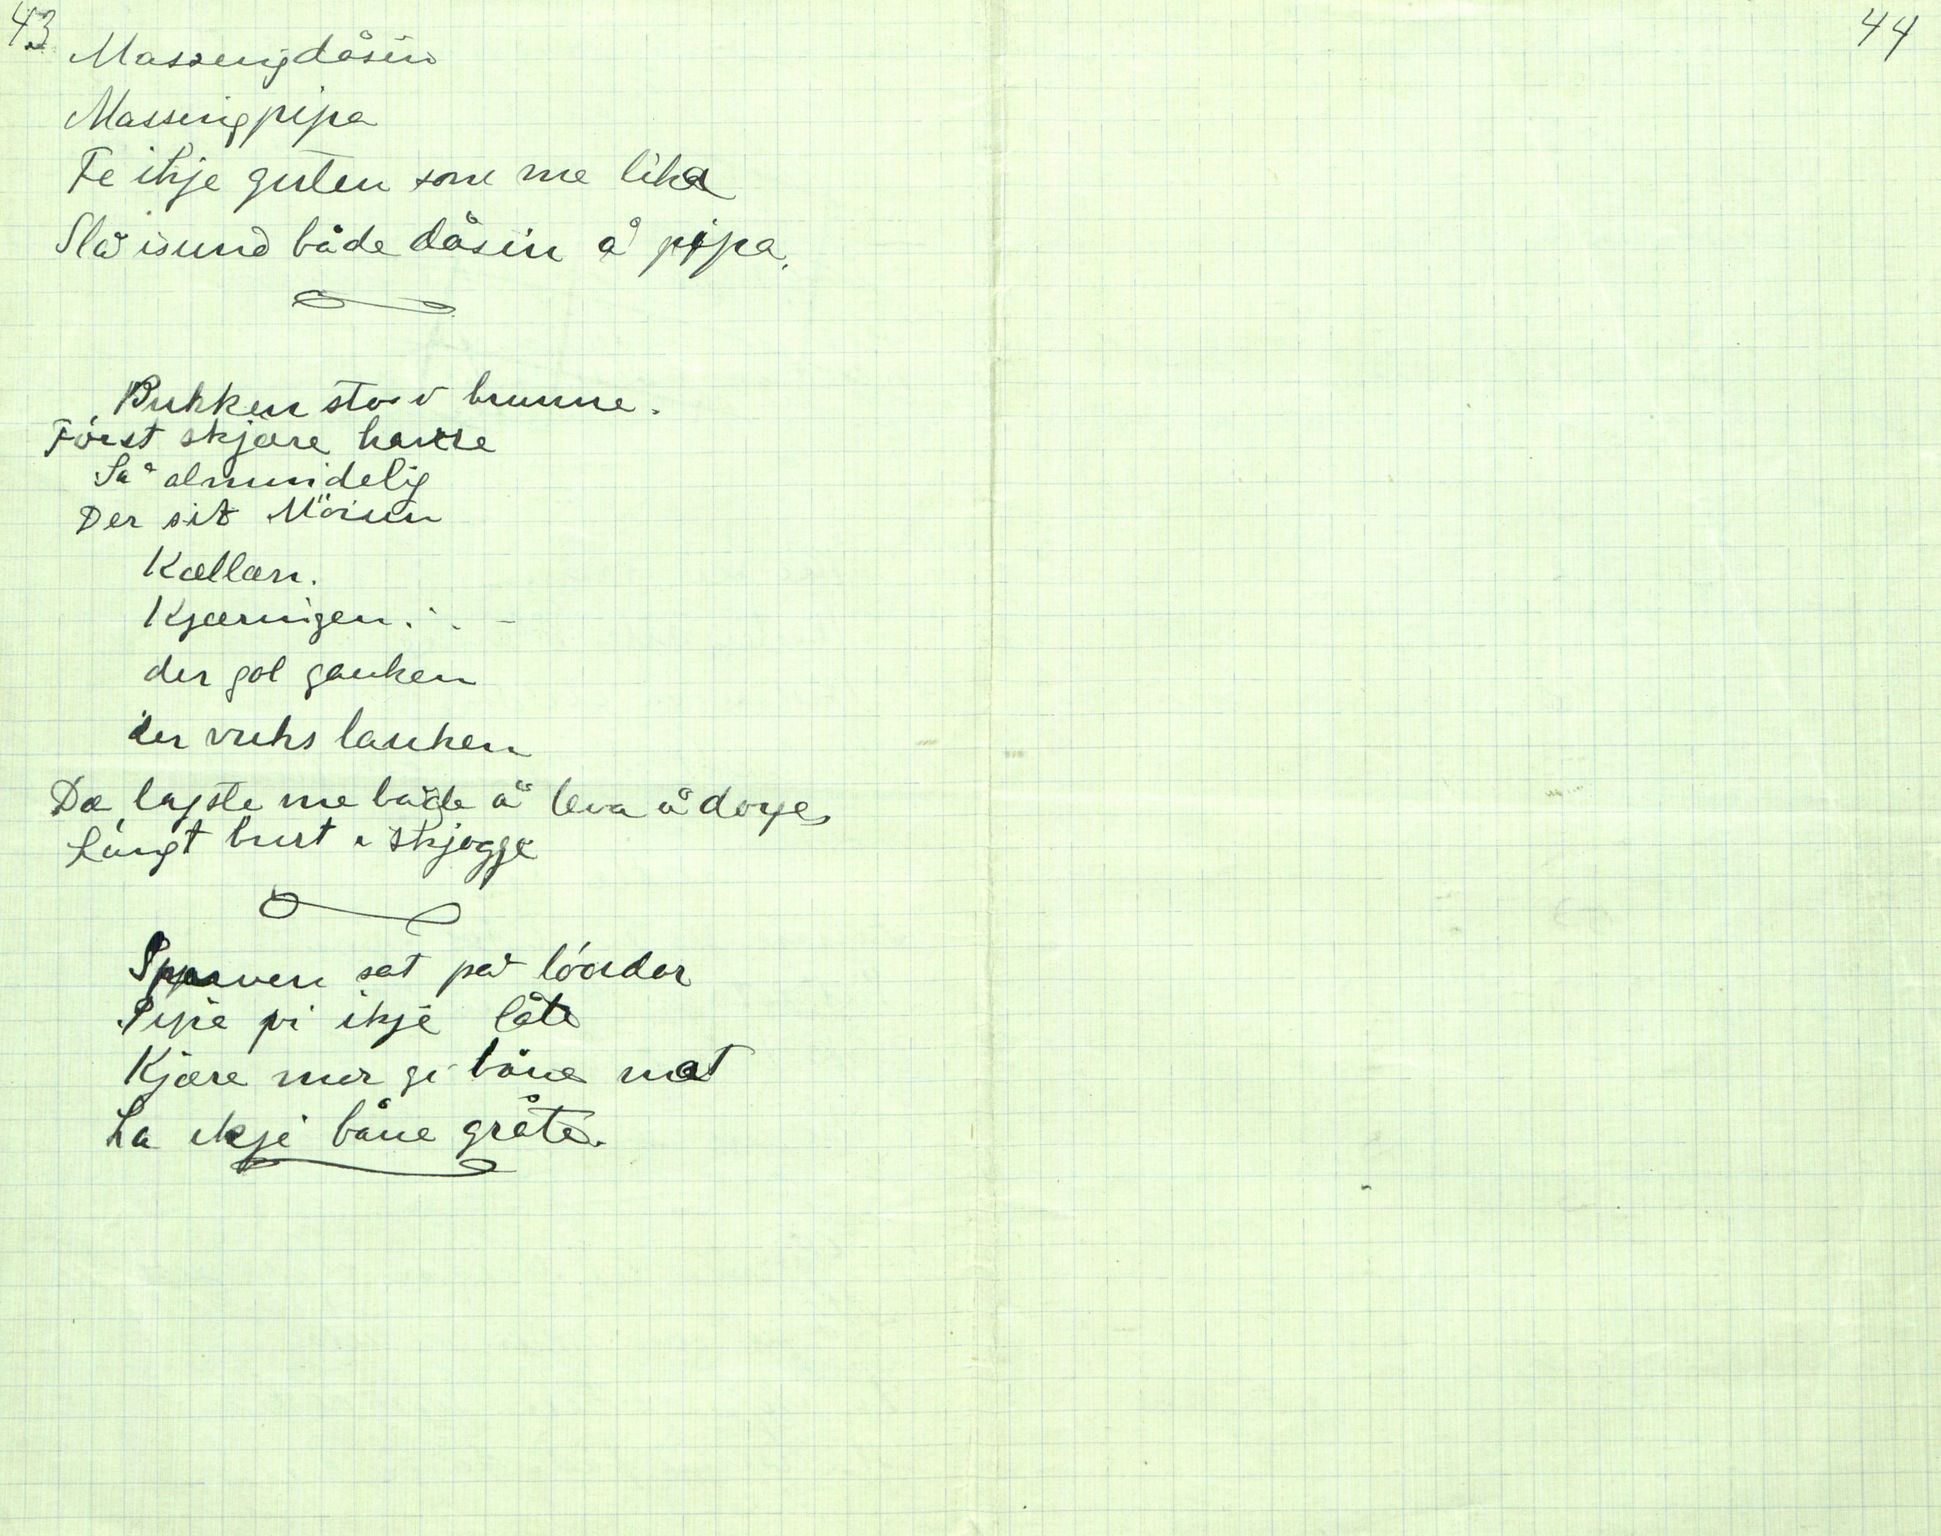 43
Massengdåsin
Massingpipa
Fe ikje guten som me lika
Slå isund både dåsin å pipa.
Bukken sto i brunne.
Först skjære hanse
Så almindelig
Der sit Möiun
Kællan.
Kjæringen.
der gol gauken
der vuks lauken
Dæ lyste me både å leva å døye
Langt burt i skjogge
Sporven sat på lóa
Pipa pi ikje låte
Kjære mor gi båne mat
La ikje båne gråte.
44